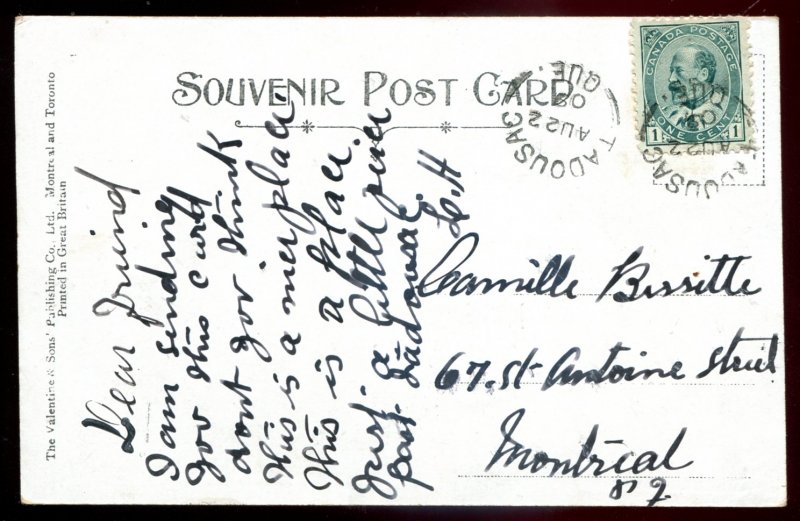 SOUVENIR POST CARD
The Valentine & Sons' Publishing Co., Ltd. Montreal and Toronto
Printed in Great Britain
CANADA POSTAGE
1 ONE CENT 1
TADOUSAC
AU 22
09
QUE.
TADOUSAC
AU 22
09
QUE.
Dear Friend
I am sending
you this card
dont you think
this is a nice place
This is a place
just a little piece
past Tadousac
L. H
Camille Bissitte
67. St. Antoine Street
Montreal